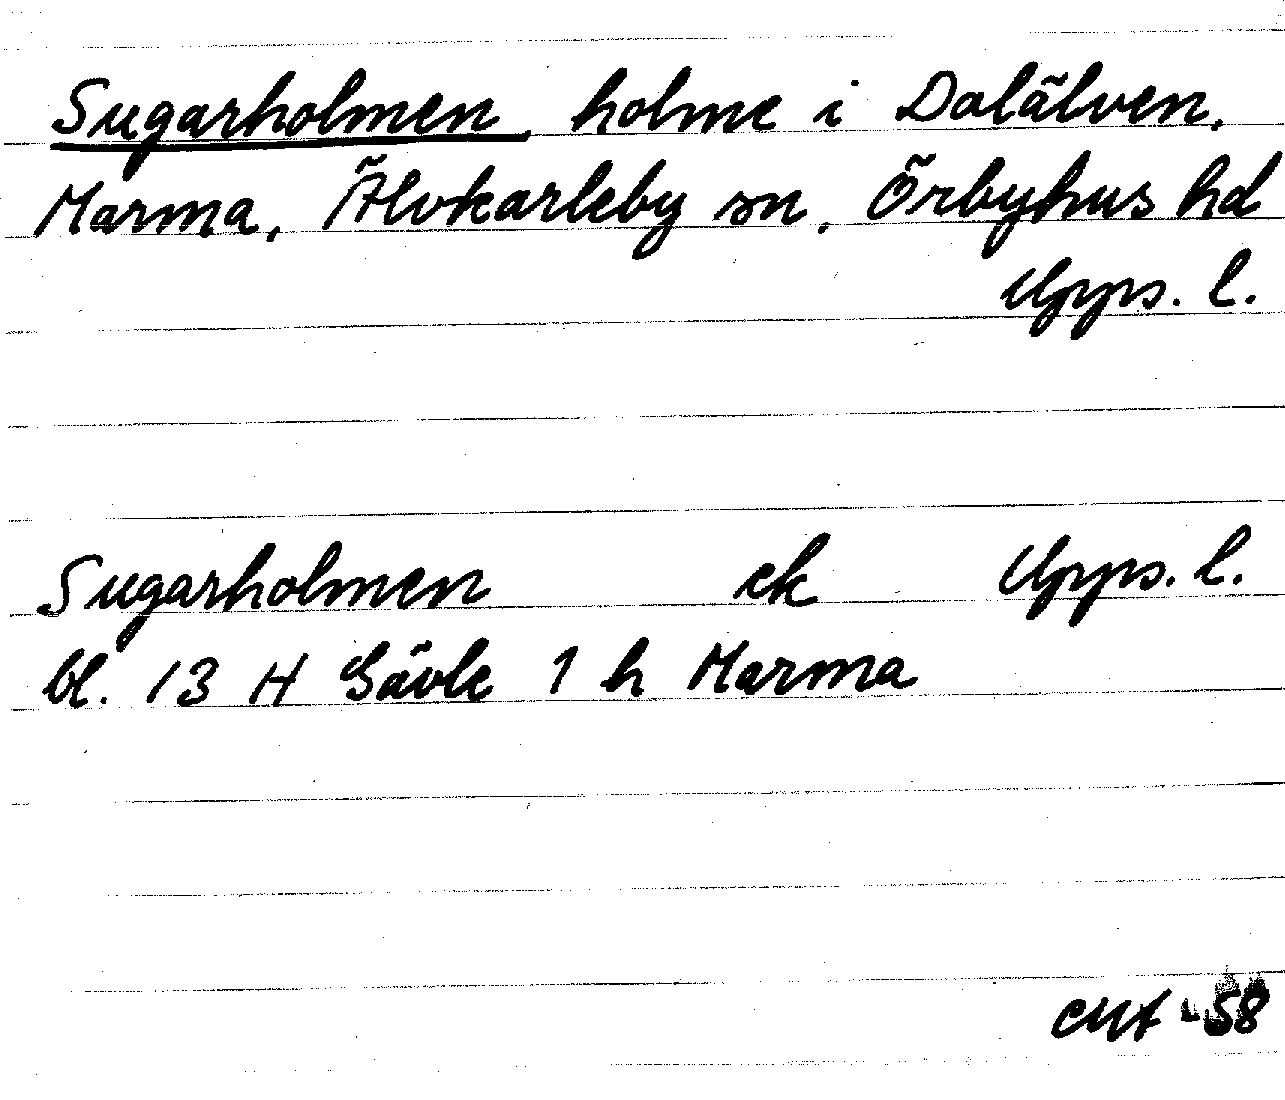 Sugarholmen, holme i Dalälven,
Marma, Älvkarleby sn, Örbyhus hd
Upps. l.
Sugarholmen ek Upps. l.
bl. 13 H Gävle 1 h Marma
58